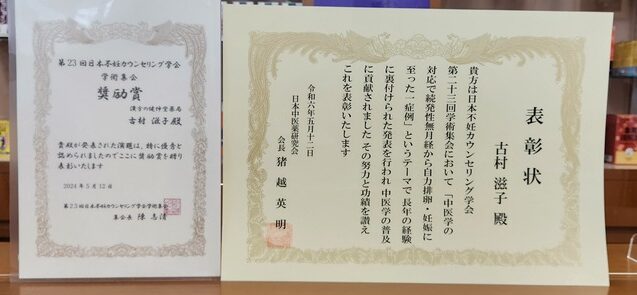 第23回日本不妊カウンセリング学会
学術集会
奨励賞
漢方の健伸堂薬局
古村 滋子殿
貴殿が発表された演題は、特に優秀と
認められましたのでここに奨励賞を贈り
表彰いたします
2024年5月12日
第23回日本不妊カウンセリング学会学術集会
集会長 陳 志清
表彰状
古村 滋子 殿
貴方は日本不妊カウンセリング学会
第二十三回学術集会において「中医学の
対応で続発性無月経から自力排卵・妊娠に
至った一症例」というテーマで長年の経験
に裏付けられた発表を行われ 中医学の普及
に貢献されました その努力と功績を讃え
これを表彰いたします
令和六年五月十二日
日本中医薬研究会
会長 猪越 英明